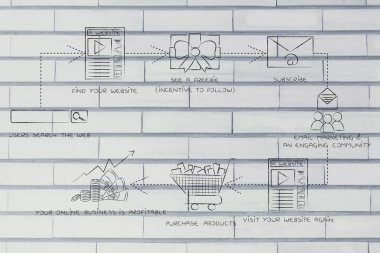 A WEBSITE
FIND YOUR WEBSITE
SEE A FREEBIE
(INCENTIVE TO FOLLOW)
SUBSCRIBE
USERS SEARCH THE WEB
EMAIL MARKETING &
AN ENGAGING COMMUNITY
A WEBSITE
VISIT YOUR WEBSITE AGAIN
PURCHASE PRODUCTS
YOUR ONLINE BUSINESS IS PROFITABLE